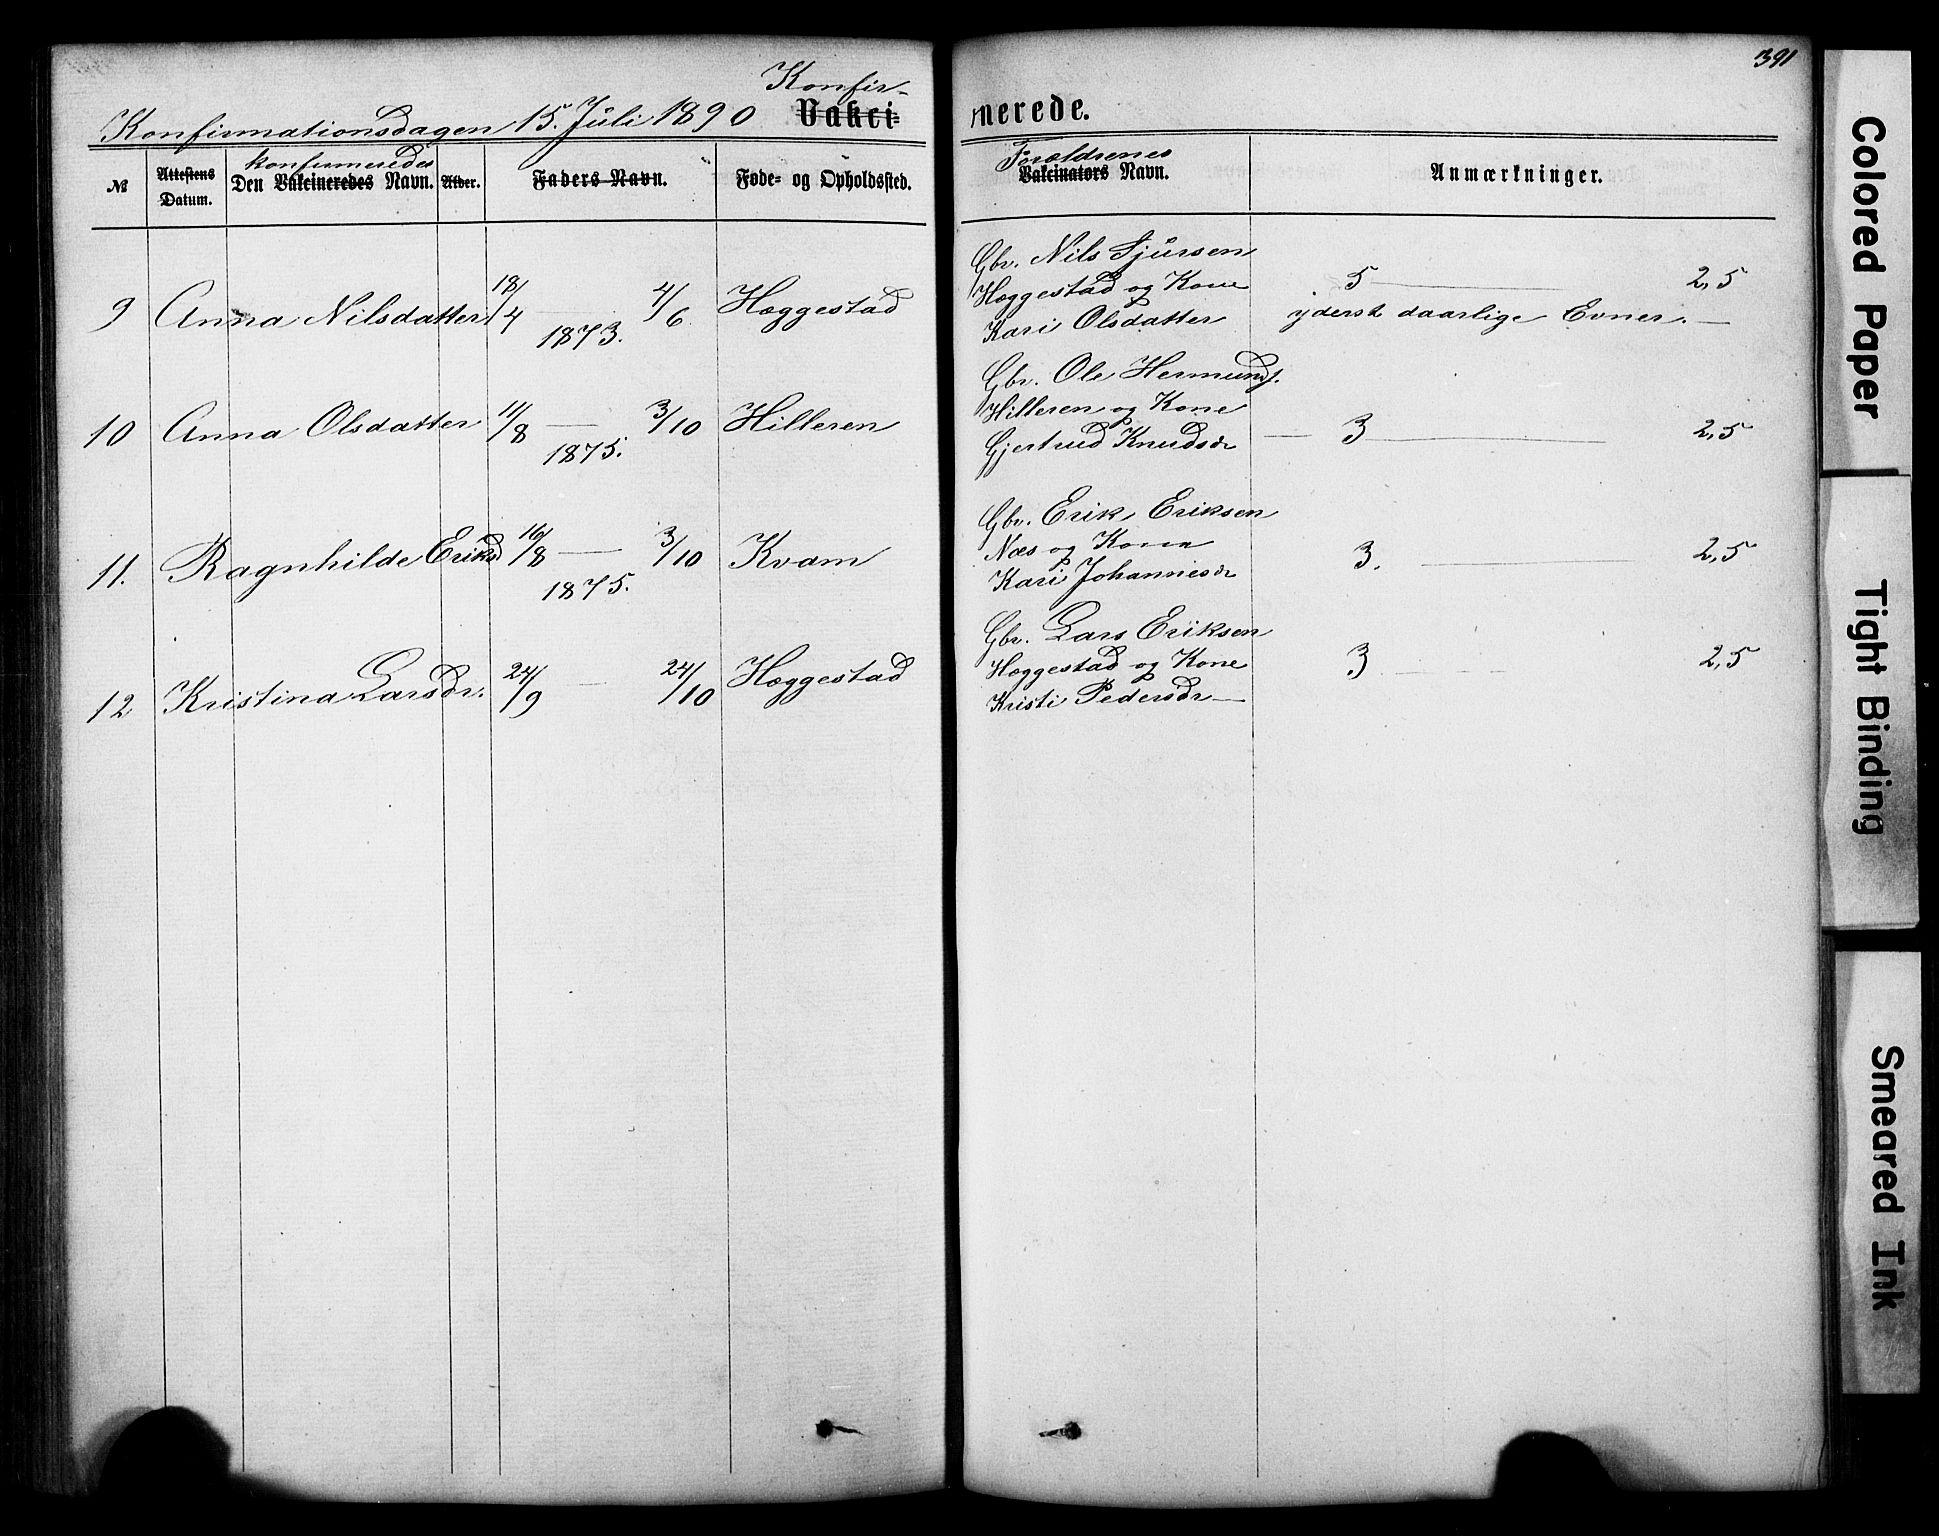 391
Konfir-
Konfirmationsdagen 15. Juli 1890 Vakci=
nerede.
konfirmeredes
Forældrenes
№ Attestens Datum. Den Vakcineredes Navn. Alder. Faders Navn. Føde= og Opholdssted. Vakcinators Navn. Anmærkninger.
Gbr. Nils Sjursen
9 Anna Nilsdatter 18/4 — 4/6 Hæggestad Hæggestad og Kone 5 — 2,5
1873. Kari Olsdatter yderst daarlige Evner. —
Gbr. Ole Hermunds.
10 Anna Olsdatter 11/8 — 3/10 Hilleren Hilleren og Kone
1875. Gjertrud Knudsdr — 3 — 2,5
Gbr. Erik Eriksen
11. Ragnhilde Eriksd 16/8 — 3/10 Kvam Næs og Kone 3. — 2,5
1875. Kari Johannesdr
Gbr. Lars Eriksen
12 Kristina Larsdr. 24/9 — 24/10 Hæggestad Hæggestad og Kone 3 2,5
Kristi Pedersdr —
Colored Paper
Tight Binding
Smeared Ink